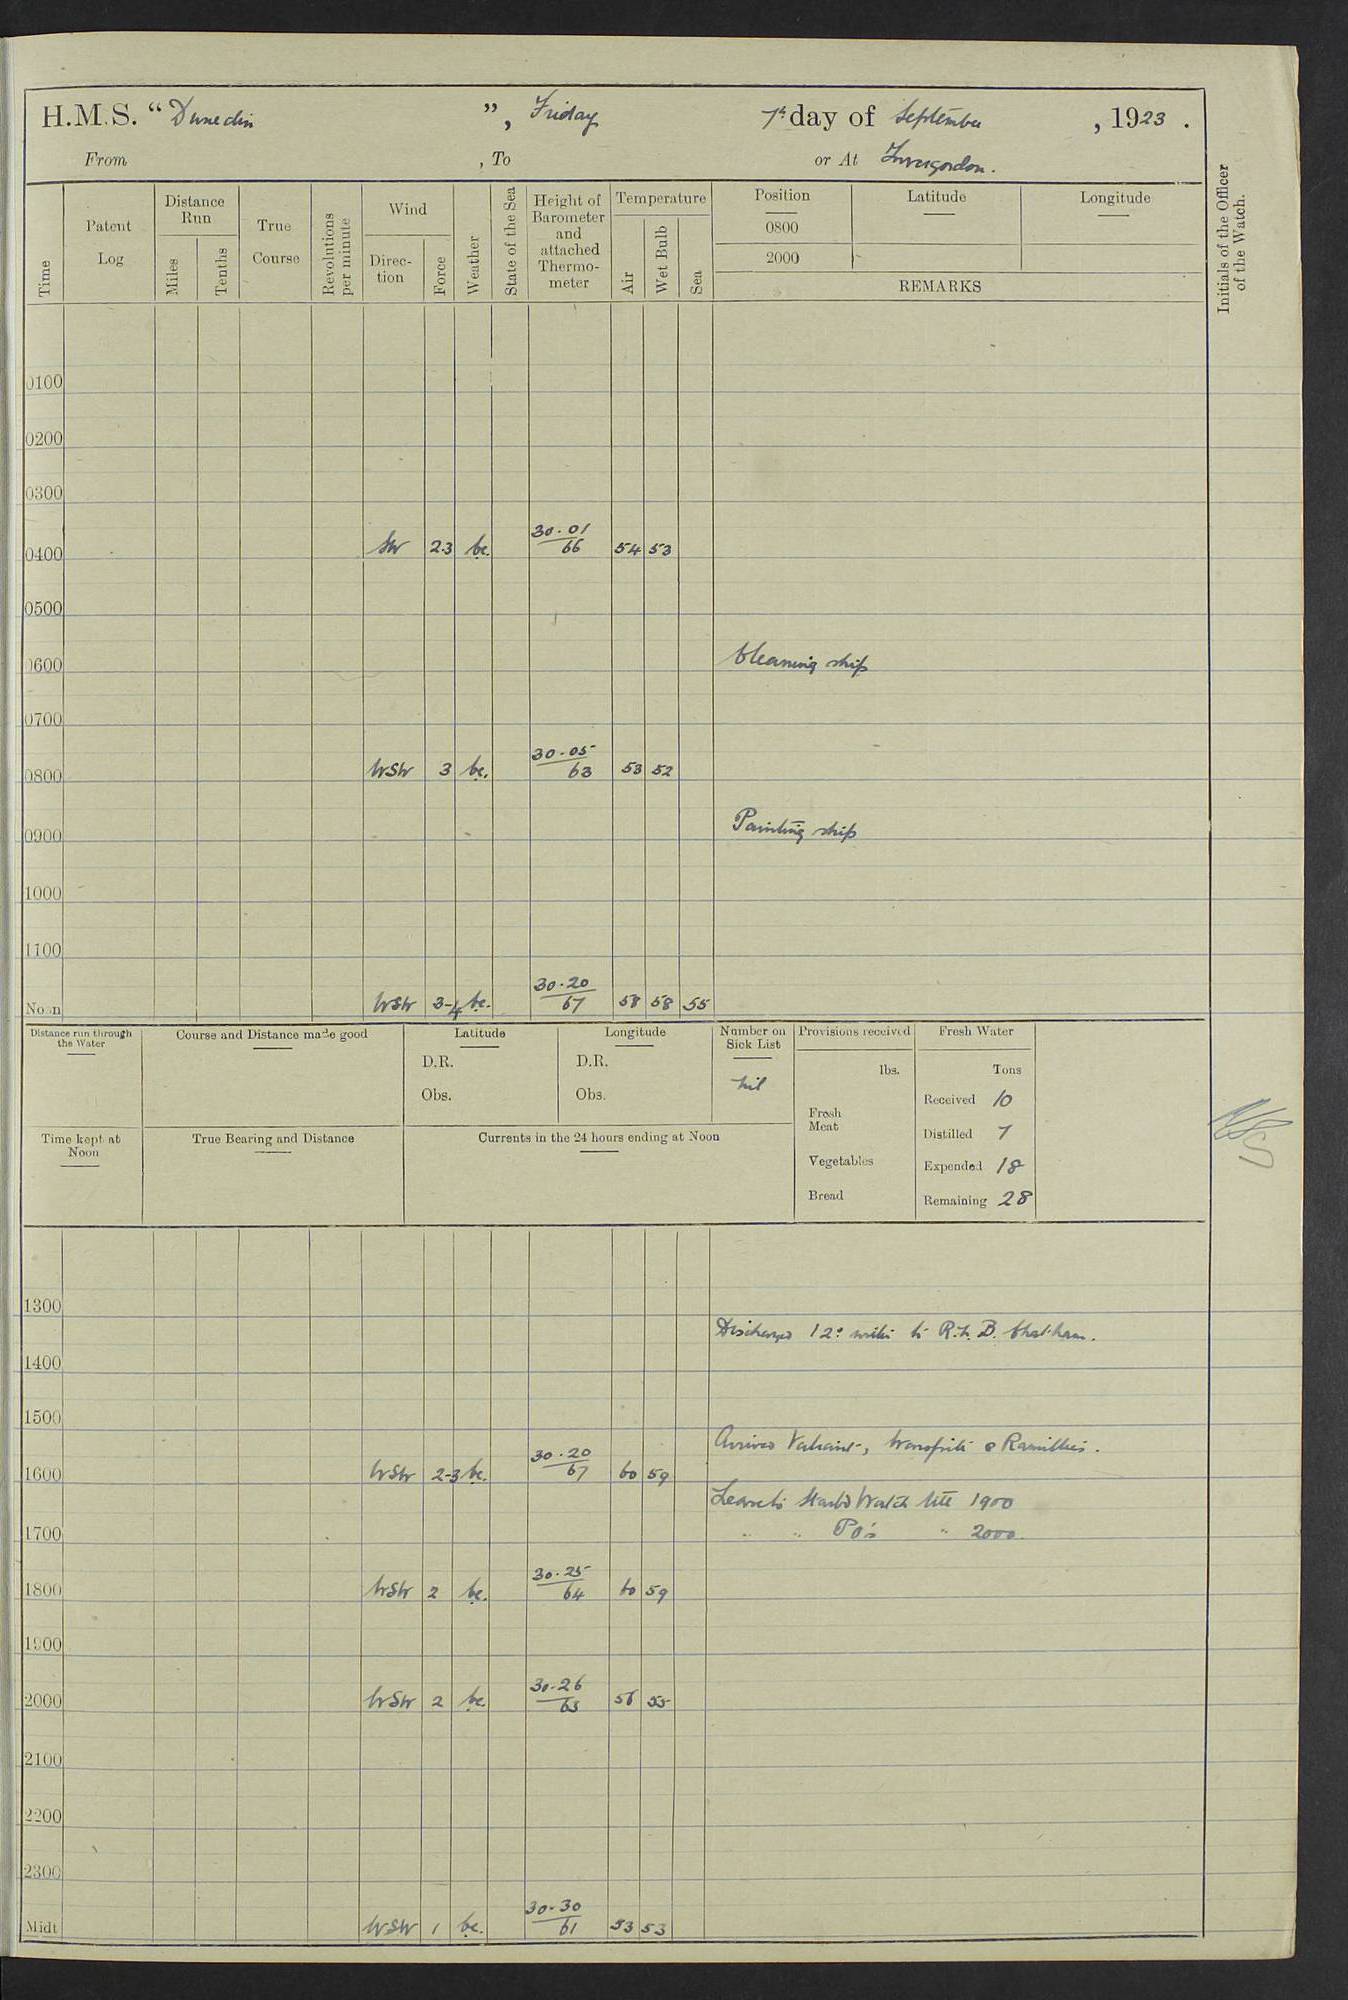 H.M.S. "Dunedin", Friday 7th day of September, 1923.
From , To or At Invergordon.
Time
Patent Log
Distance Run
Miles
Tenths
True Course
Revolutions per minute
Wind
Direction
Force
Weather
State of the Sea
Height of Barometer and attached Thermometer
Temperature
Air
Wet Bulb
Sea
Position Latitude Longitude
0800
2000
REMARKS
Initials of the Officer of the Watch.
0100
0200
0300
0400 SW 2.3 bc. 30.01 66 54 53
0500
0600 Cleaning ship
0700
0800 WSW 3 bc. 30.05 63 53 52
0900 Painting ship
1000
1100
Noon WSW 3-4 bc. 30.20 67 58 58 55
Distance run through the Water
Course and Distance made good
Latitude
D.R.
Obs.
Longitude
D.R.
Obs.
Number on Sick List
Nil
Provisions received
lbs.
Fresh Meat
Vegetables
Bread
Fresh Water
Tons
Received 10
Distilled 7
Expended 18
Remaining 28
Time kept at Noon
True Bearing and Distance
Currents in the 24 hours ending at Noon
1300
Discharged to R.N.B. Chatham.
1400
1500
Arrived Valiant, Warspite & Ramillies.
1600 WSW 2-3 bc. 30.20 67 60 59
Leave to Starbd Watch till 1900
1700 " " PO's " 2000.
1800 WSW 2 bc. 30.25 64 60 59
1900
2000 WSW 2 bc. 30.26 63 56 55
2100
2200
2300
Midt WSW 1 bc. 30.30 61 53 53